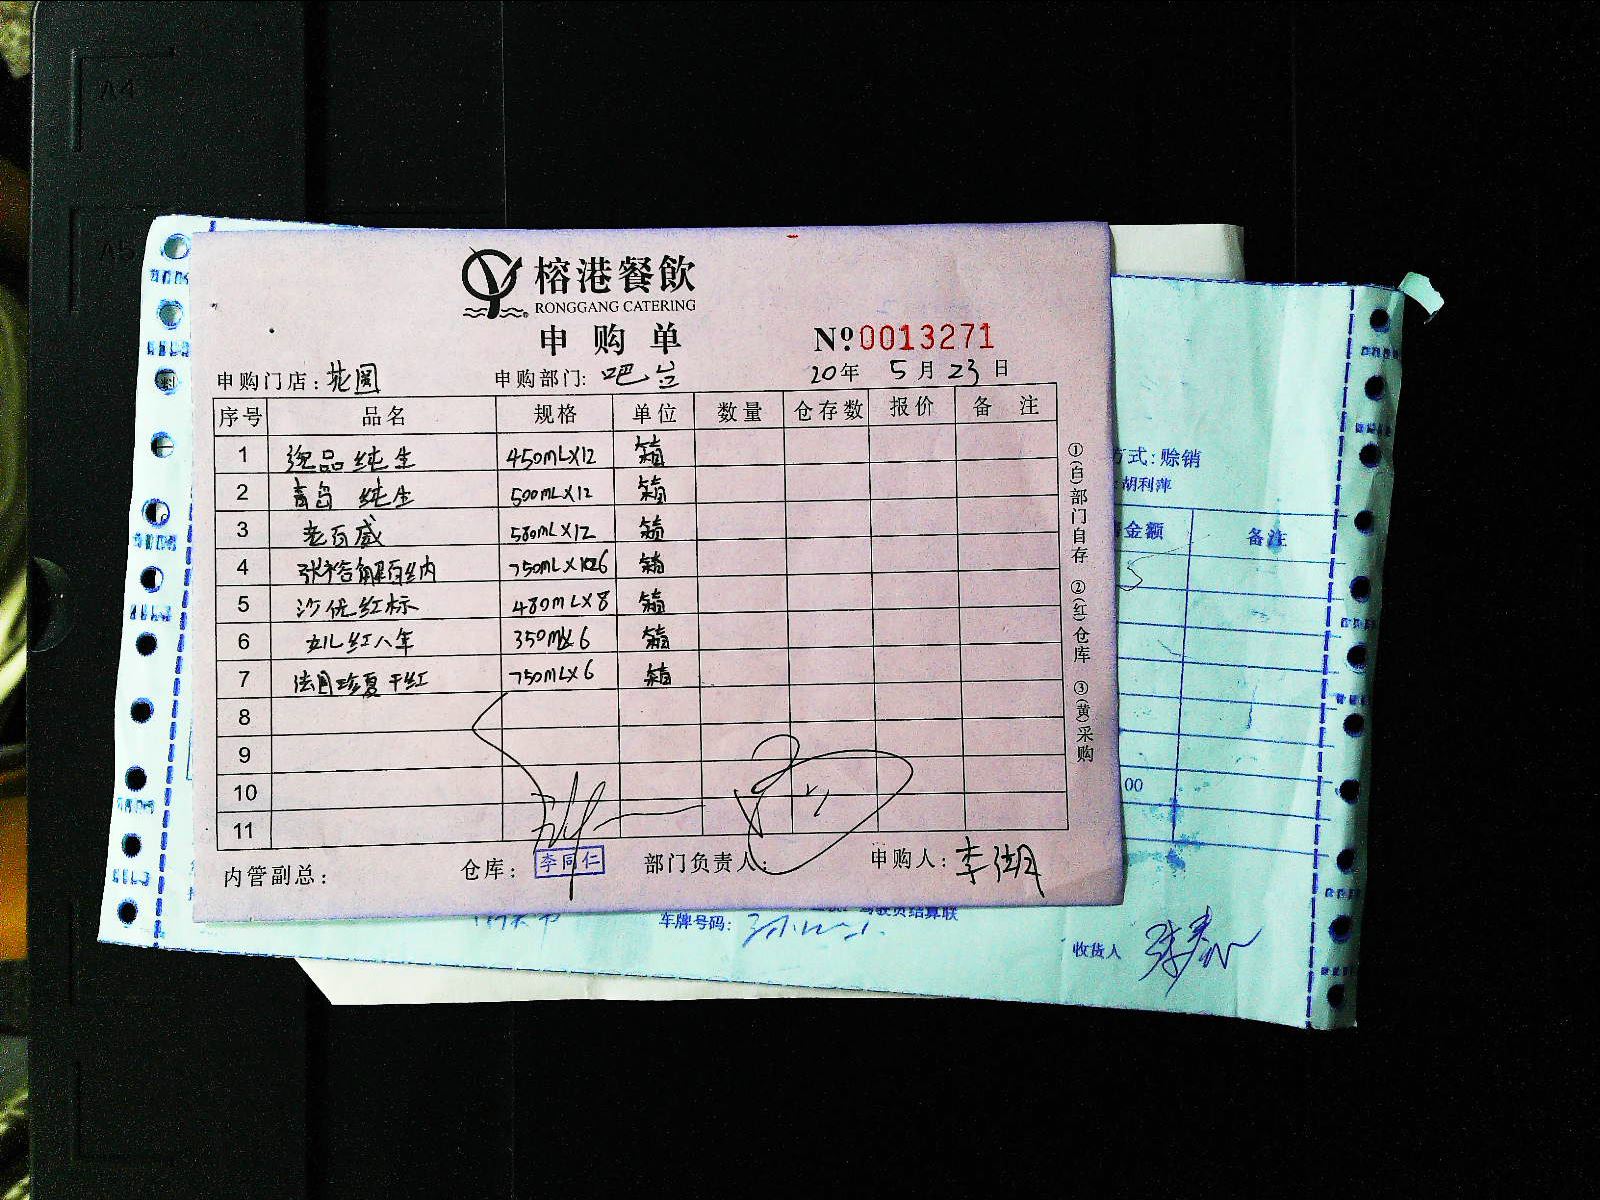 榕港餐飲
RONGGANG CATERING
申购单
№0013271
申购门店：花园 申购部门：吧台 20年 5月 23日
序号 品名 规格 单位 数量 仓存数 报价 备注
1 逸品纯生 450mL×12 箱
2 青岛 纯生 500mL×12 箱
3 老百威 580mL×12 箱
4 张裕解百纳 箱
5 沙优红标 480mL×8 箱
6 女儿红八年 350ml×6 箱
7 干红 750mL×6 箱
8
9
10
11
内管副总： 仓库： 李同仁 部门负责人： 申购人：李湖
①(白)部门自存 ②(红)仓库 ③(黄)采购
方式：赊销
胡利萍
金额 备注
00
车牌号码：
结算联
收货人
A4
A5